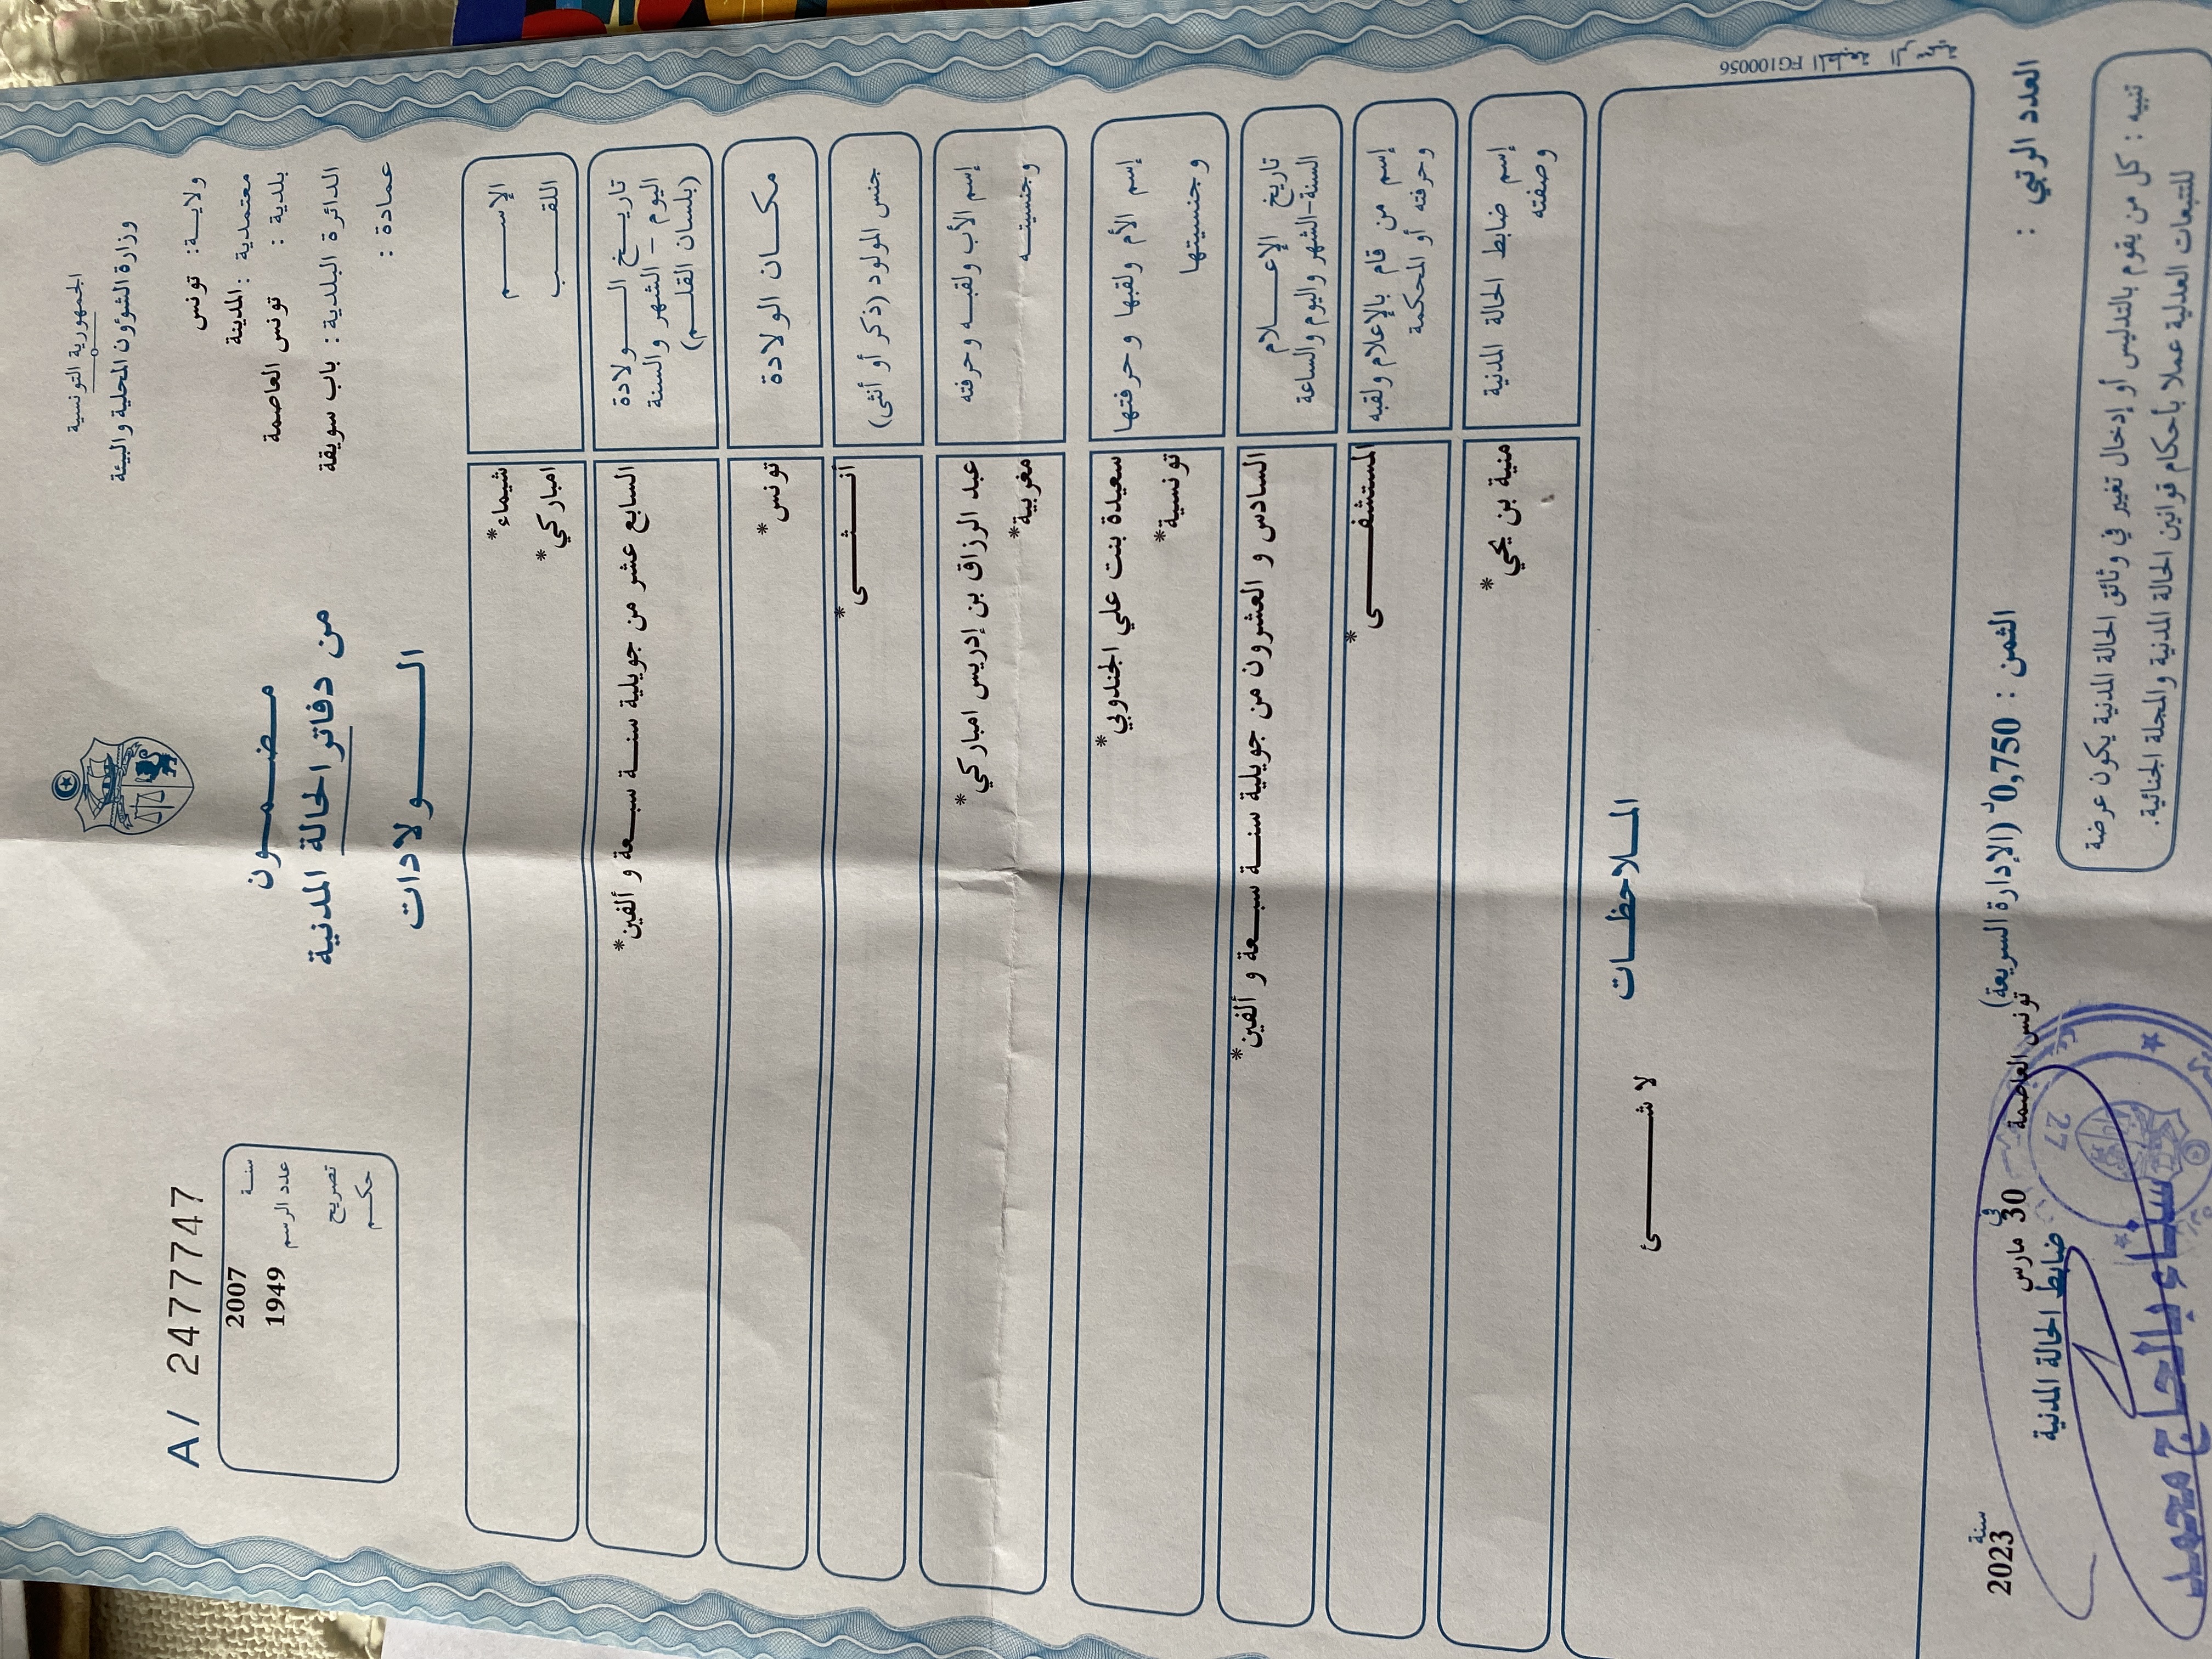 الجمهورية التونسية
وزارة الشؤون المحلية والبيئة
ولاية: تونس
معتمدية : المدينة
بلدية : تونس العاصمة
الدائرة البلدية : باب سويقة
عمادة :
مضمون
من دفاتر الحالة المدنية
الولادات
A/ 2477747
سنة 2007
عدد الرسم 1949
تصريح
حكم
الإسم شيماء*
اللقب امباركي*
تاريخ الولادة السابع عشر من جويلية سنة سبعة و ألفين*
اليوم - الشهر والسنة
(بلسان القلم)
مكان الولادة تونس*
جنس المولود (ذكر أو أنثى) أنثى*
إسم الأب ولقبه وحرفته عبد الرزاق بن إدريس امباركي*
وجنسيته مغربية*
إسم الأم ولقبها وحرفتها سعيدة بنت علي الجندوبي*
وجنسيتها تونسية*
تاريخ الإعلام السادس و العشرون من جويلية سنة سبعة و ألفين*
السنة-الشهر واليوم والساعة
إسم من قام بالإعلام ولقبه المستشفى*
وحرفته أو المحكمة
إسم ضابط الحالة المدنية منية بن يحي*
وصفته
الملاحظات
لا شئ
FG100056 المطبعة
العدد الرتبي :
الثمن : 0,750 (الإدارة السريعة)
تونس العاصمة في 30 مارس سنة 2023
ضابط الحالة المدنية
سناء بالحاج محمد
27
تنبيه : كل من يقوم بالتدليس أو إدخال تغيير في وثائق الحالة المدنية يكون عرضة
للتتبعات العدلية عملا بأحكام قوانين الحالة المدنية والمجلة الجنائية.